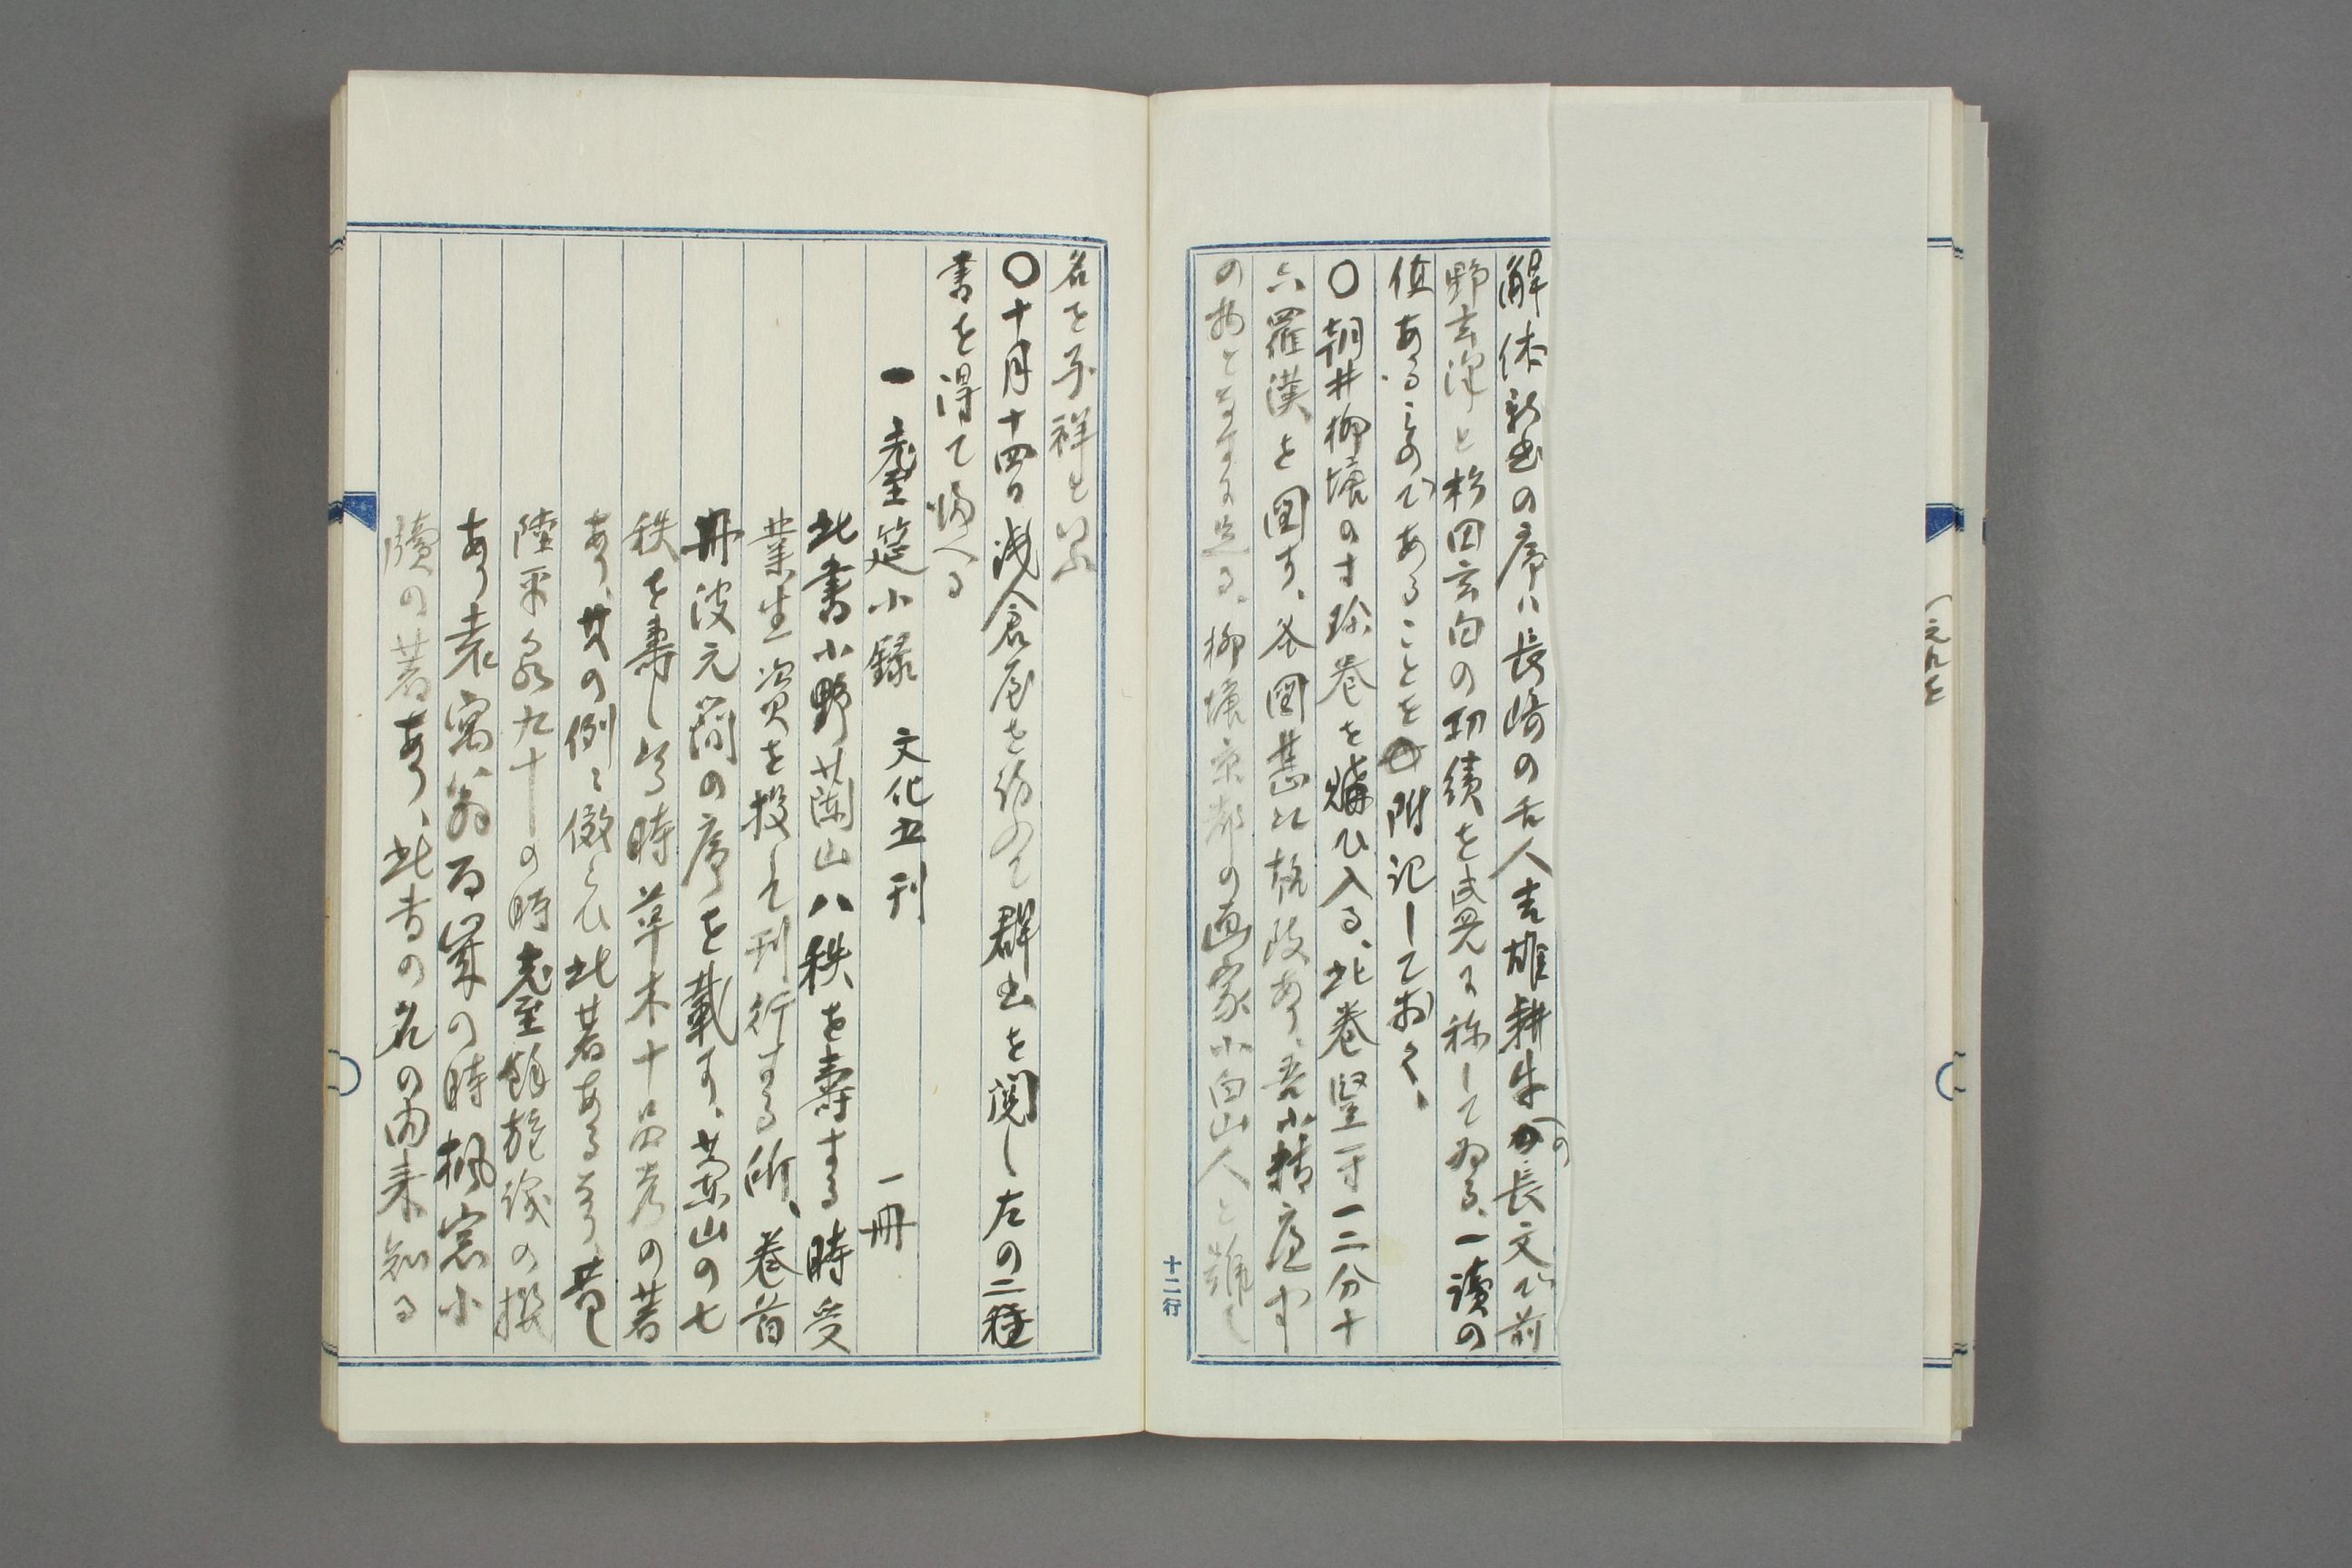 解体新書の序ハ長崎の舌人吉雄耕牛の長文で前
野玄澤と杉田玄白の功績を盛んに称してゐる、一讀の
値あるものであることを附記しておく、
〇朝井柳塘の寸珍巻を購ひ入る、此巻竪一寸一二分十
六羅漢を図す、各図
の物とするに足る、柳塘京都の画家小白山人と号し
十二行
名を子祥といふ
〇十月十四日浅倉屋を訪ふて群書を閲し左の二種
書を得て帰へる
一 耋筵小録 文化五刊 一冊
此書小野蘭山八秩を壽する時受
業生資を投して刊行する所、巻首
丹波元簡の序を載す、蘭山の七
秩を壽し時草木十品考の著
あり、其の例に倣ひ此著あるなり、昔し
陸平泉九十の時耋餘雜識の撰
あり袁寓翁百歳の時楓窓小
牘の著あり、此書の名の由来知る